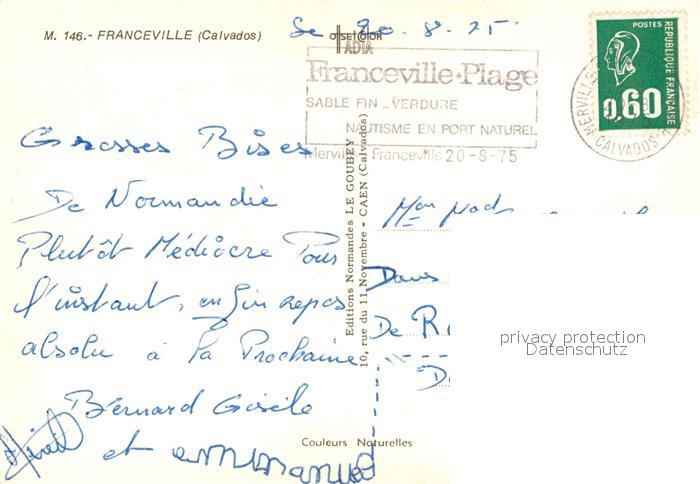 M. 146.- FRANCEVILLE (Calvados)
Le 20.8.75.
Franceville-Plage
SABLE FIN - VERDURE
NAUTISME EN PORT NATUREL
Merville Franceville 20-8-75
POSTES
REPUBLIQUE FRANÇAISE
0,60
CALVADOS
Grosses Bises
De Normandie
Plutôt Médiocre Pour
l'instant, enfin repos
absolu à la Prochaine
Bernard Gisèle
et emmanuel
Editions Normandes LE GOUBEY
10, rue du 11 Novembre - CAEN (Calvados)
Couleurs Naturelles
Dans
De
privacy protection
Datenschutz